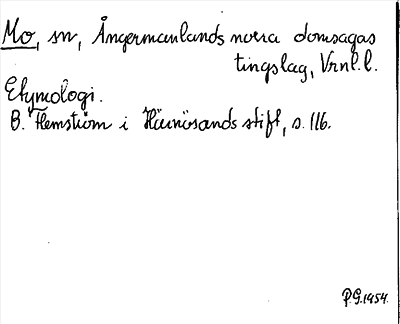 Mo, sn, Ångermanlands norra domsagas
tingslag, Vrnl.l.
Etymologi.
B. Flemström i Härnösands stift, s. 116.
P.G. 1954.